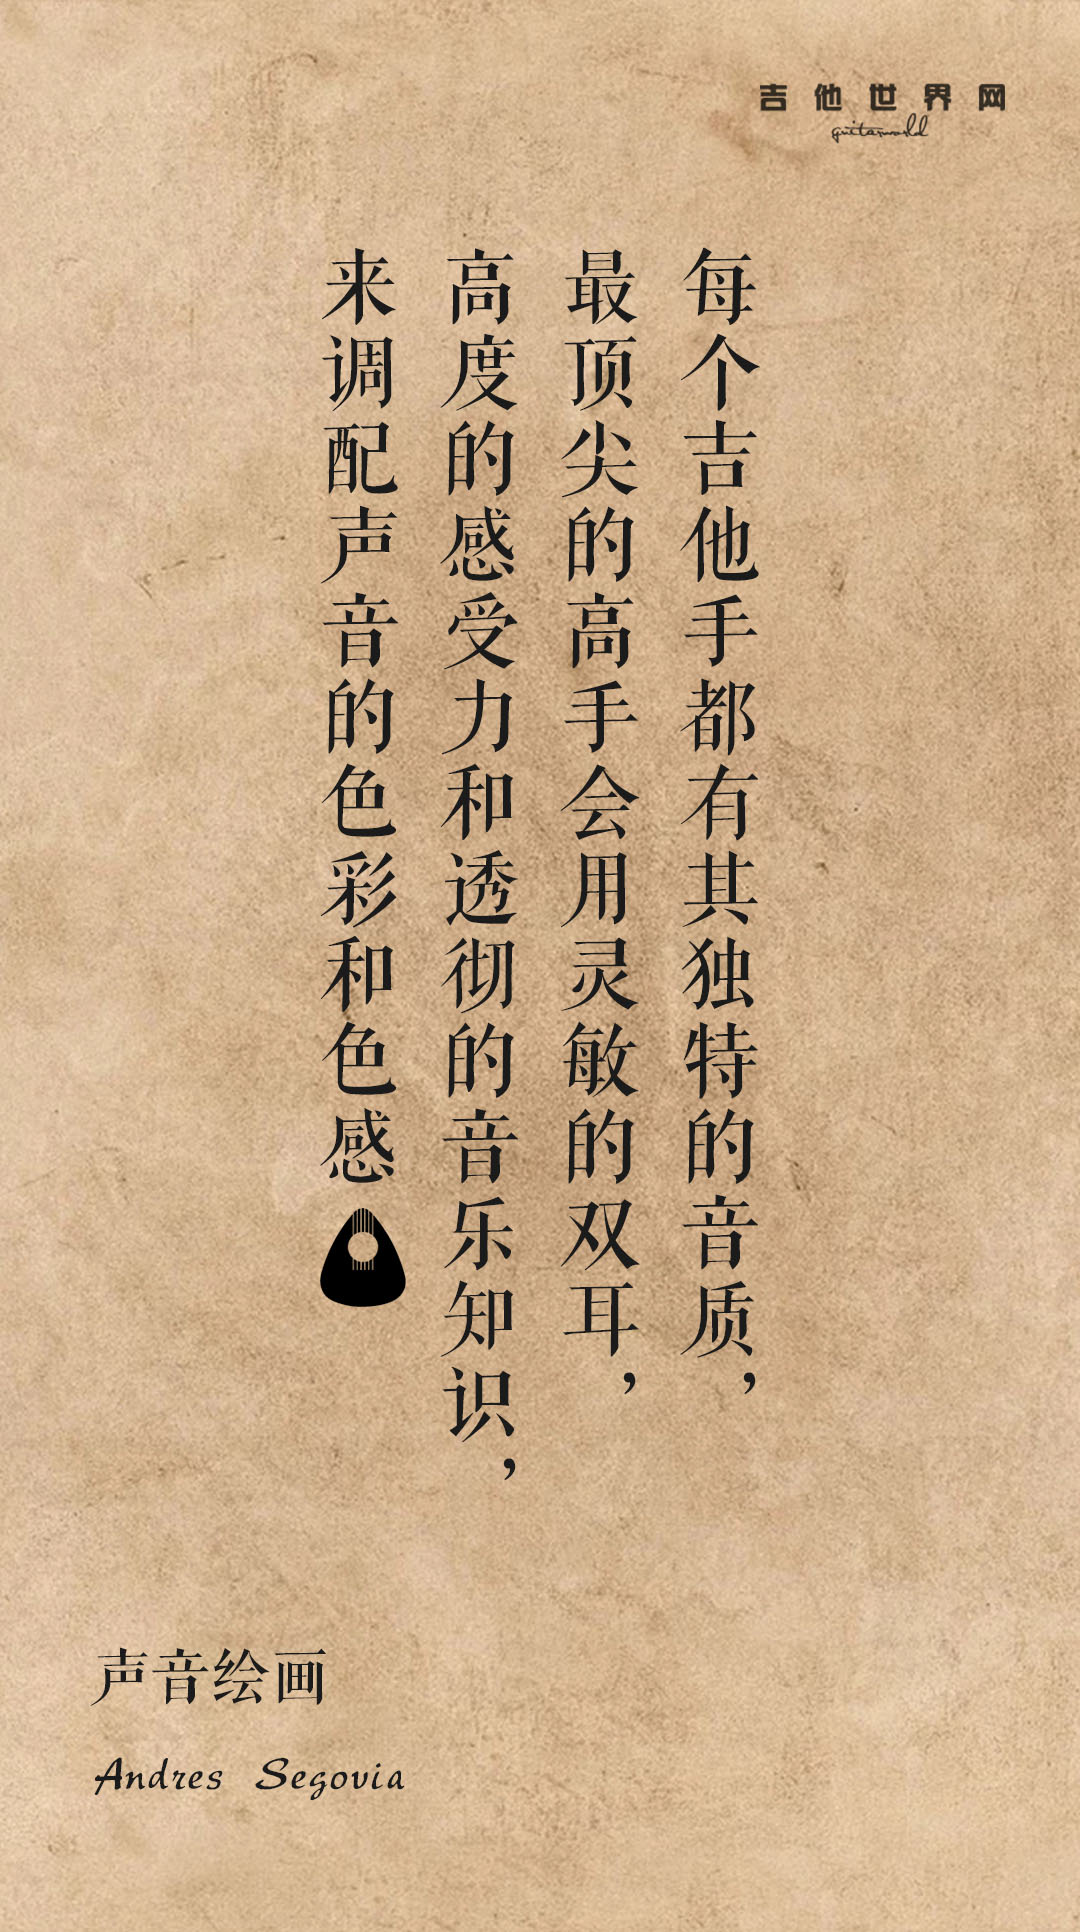 吉他世界网
guitarworld
每个吉他手都有其独特的音质，
最顶尖的高手会用灵敏的双耳，
高度的感受力和透彻的音乐知识，
来调配声音的色彩和色感
声音绘画
Andres Segovia